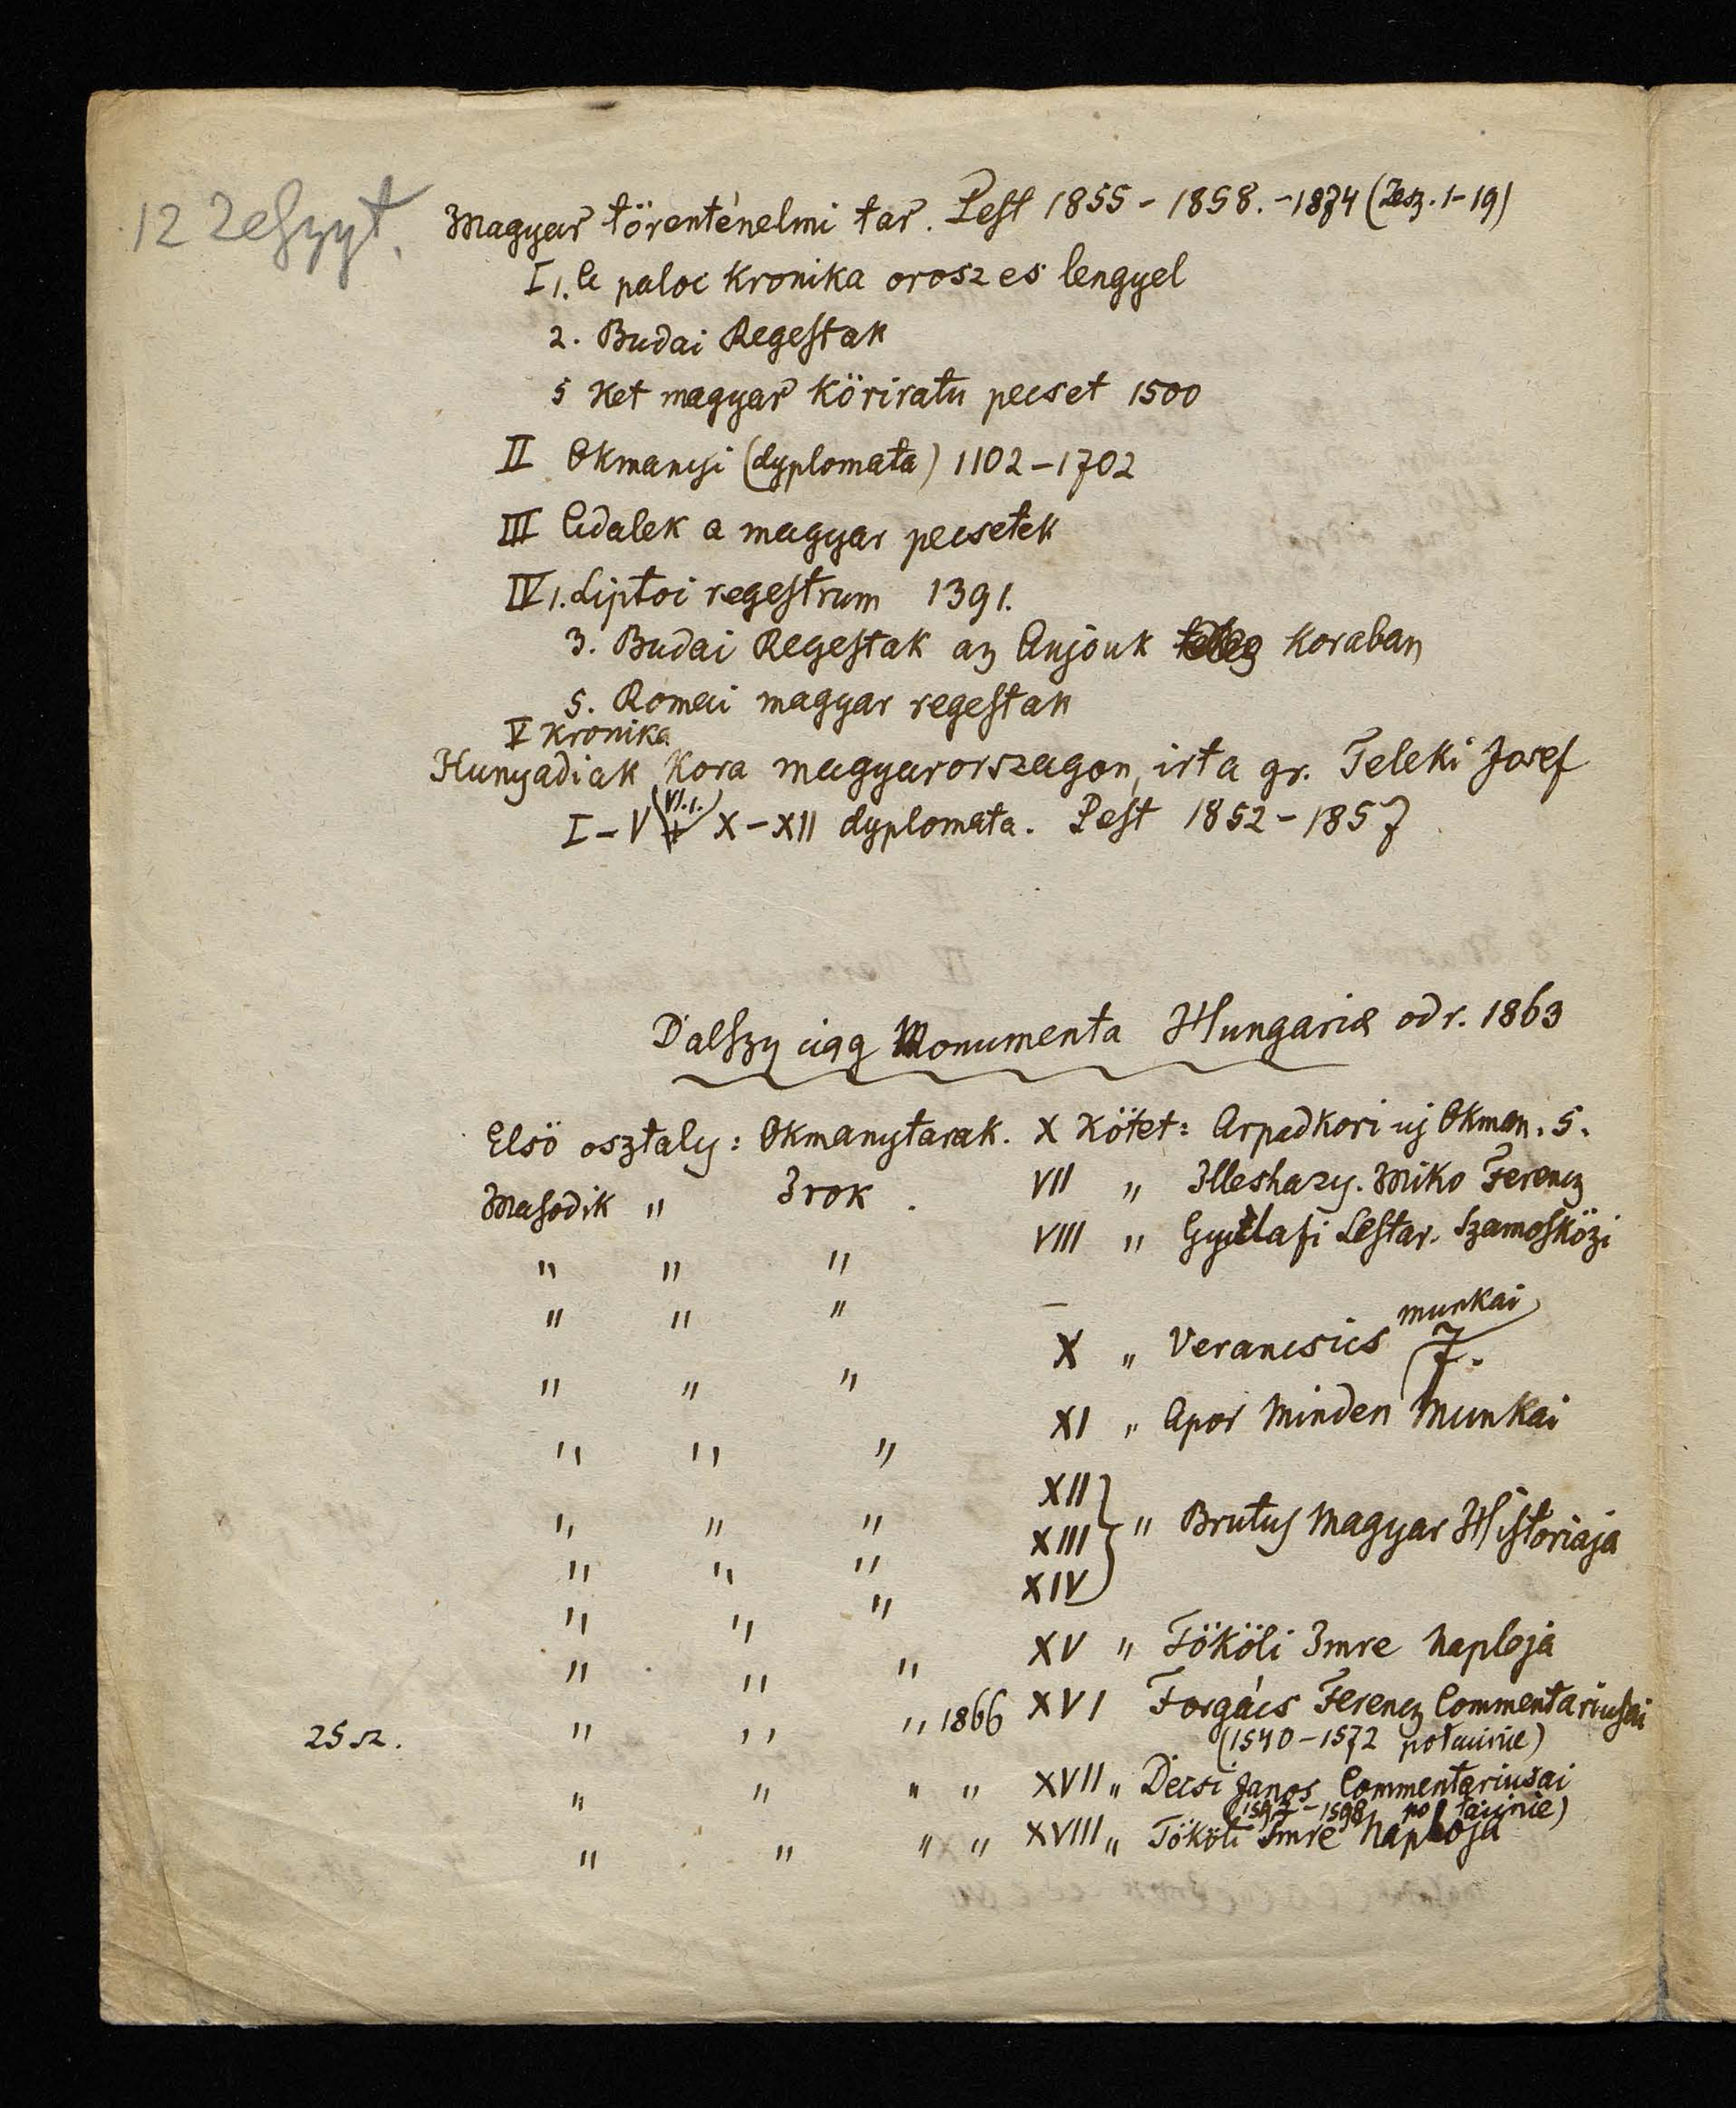 12 Zeszyt.
Magyar törenténelmi tar. Pest 1855 - 1858. - 1874 (Zesz. 1-19)
I 1. A paloc Kronika orosz es lengyel
2. Budai Regestak
5 Ket magyar köriratu pecset 1500
II Okmanyi (dyplomata) 1102-1702
III Adalek a magyar pecsetek
IV 1. Liptoi regestrum 1391.
3. Budai Regestak az Anjouk koraban
5. Romai magyar regestak
V Kronika
Hunyadiak Kora magyarorszagon, irta gr. Teleki Josef
I - V (VI.1.) X-XII dyplomata. Pest 1852-1857
Dalszy ciąg Monumenta Hungariæ od r. 1863
Elsö osztaly: Okmanytarak. X Kötet: Arpadkori uj Okman. 5.
Masodik " Irok . VII " Illeshazy. Miko Ferencz
" " " VIII " Gyulafi Lestar. Szamosközi
" " " -
munkai
" " " X " Verancsics 7.
" " " XI " Apor Minden Munkai
" " " XII
" " " XIII " Brutus Magyar Historiaja
" " " XIV
" " " XV " Tököli Imre Naploja
25 sz. " " " 1866 XVI Forgács Ferencz Commentariusai
(1540-1572 po łacinie)
" " " " XVII " Decsi Janos Commentariusai
(1592-1598 po łacinie)
" " " " XVIII " Tököli Imre Naploja